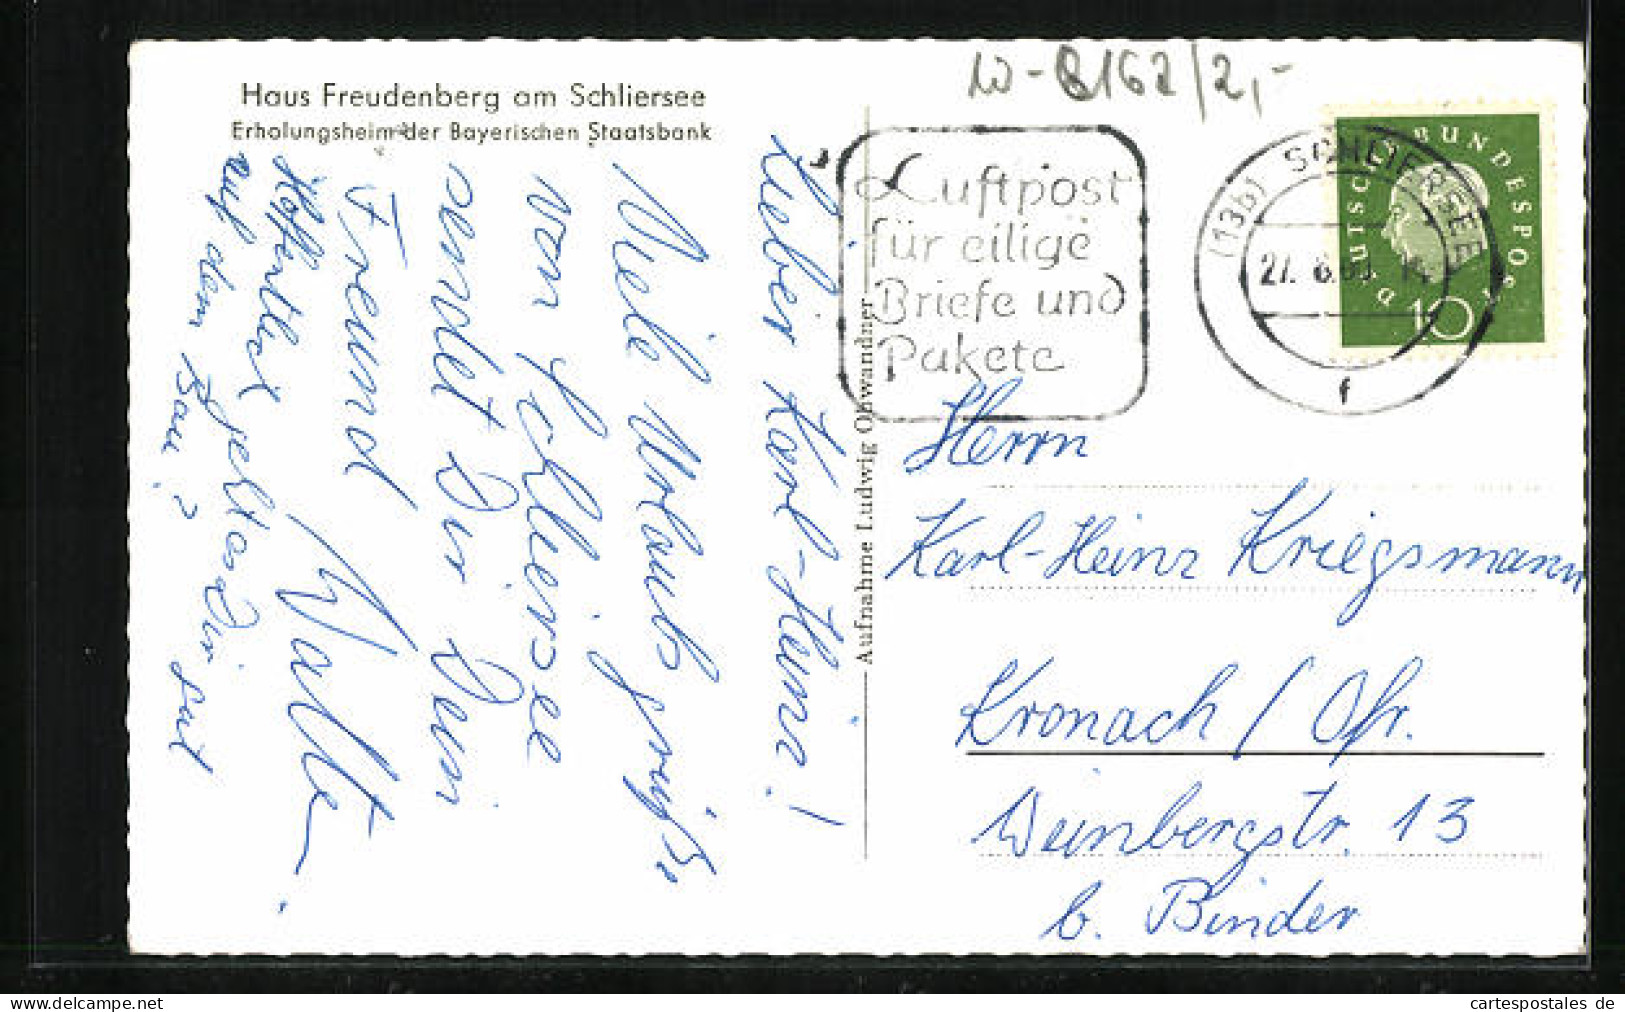 W-8162/2,-
Haus Freudenberg am Schliersee
Erholungsheim der Bayerischen Staatsbank
Lieber Karl-Heinz!
Viele Urlaubsgrüße
von Schliersee
sendet Dir Dein
Freund
Walter.
Hoffentlich gefällts Dir
auf dem Bau?
Aufnahme Ludwig Ohwandner
Luftpost
für eilige
Briefe und
Pakete
(13b) SCHLIERSEE
27. 8.60. 14
f
DEUTSCHE BUNDESPOST
10
Herrn
Karl-Heinz Kriegsmann
Kronach / Ofr.
Weinbergstr. 13
b. Binder
www.delcampe.net
cartespostales de